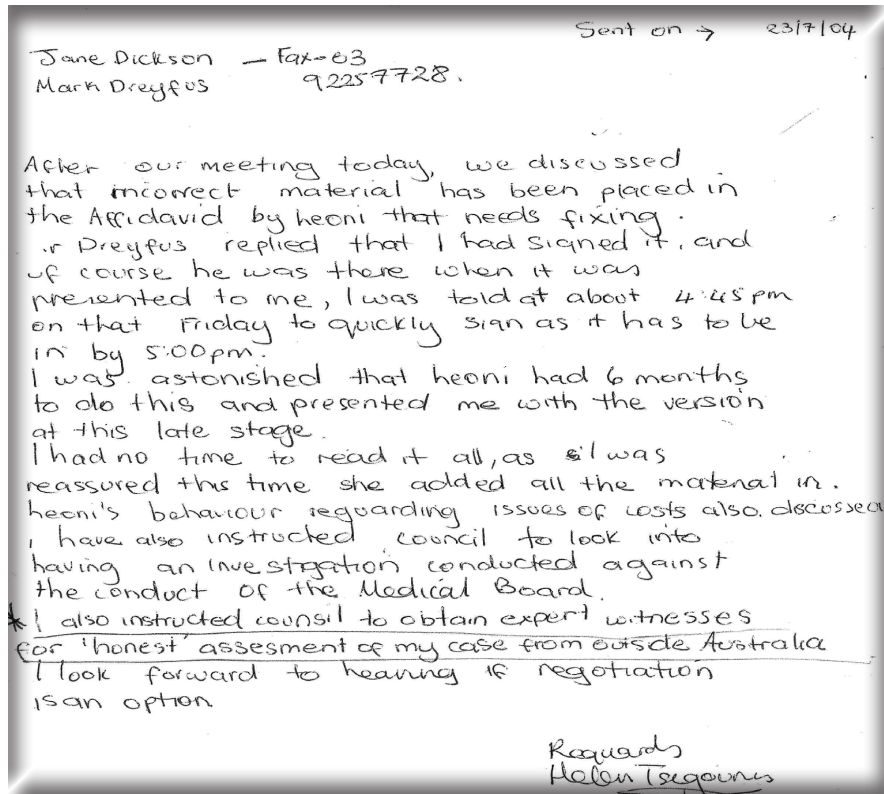 Sent on → 23/7/04
Jane Dickson — Fax-03
Mark Dreyfus 92257728.
After our meeting today, we discussed
that incorrect material has been placed in
the Affidavid by heoni that needs fixing.
r Dreyfus replied that I had signed it, and
of course he was there when it was
presented to me, I was told at about 4:45pm
on that Friday to quickly sign as it has to be
in by 5:00pm.
I was astonished that heoni had 6 months
to do this and presented me with the version
at this late stage.
I had no time to read it all, as I was
reassured this time she added all the material in.
heoni's behaviour reguarding issues of costs also. discussed
I have also instructed council to look into
having an investigation conducted against
the conduct of the Medical Board.
* I also instructed counsil to obtain expert witnesses
for 'honest' assesment of my case from outside Australia
I look forward to hearing if negotiation
is an option
Reguards
Helen Tsegounis